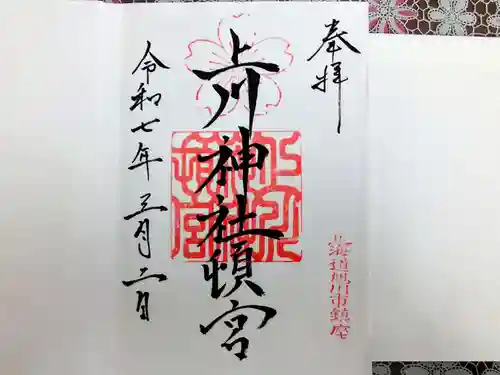 奉拝
上川神社頓宮
上川神社頓宮
北海道旭川市鎮座
令和七年三月二日